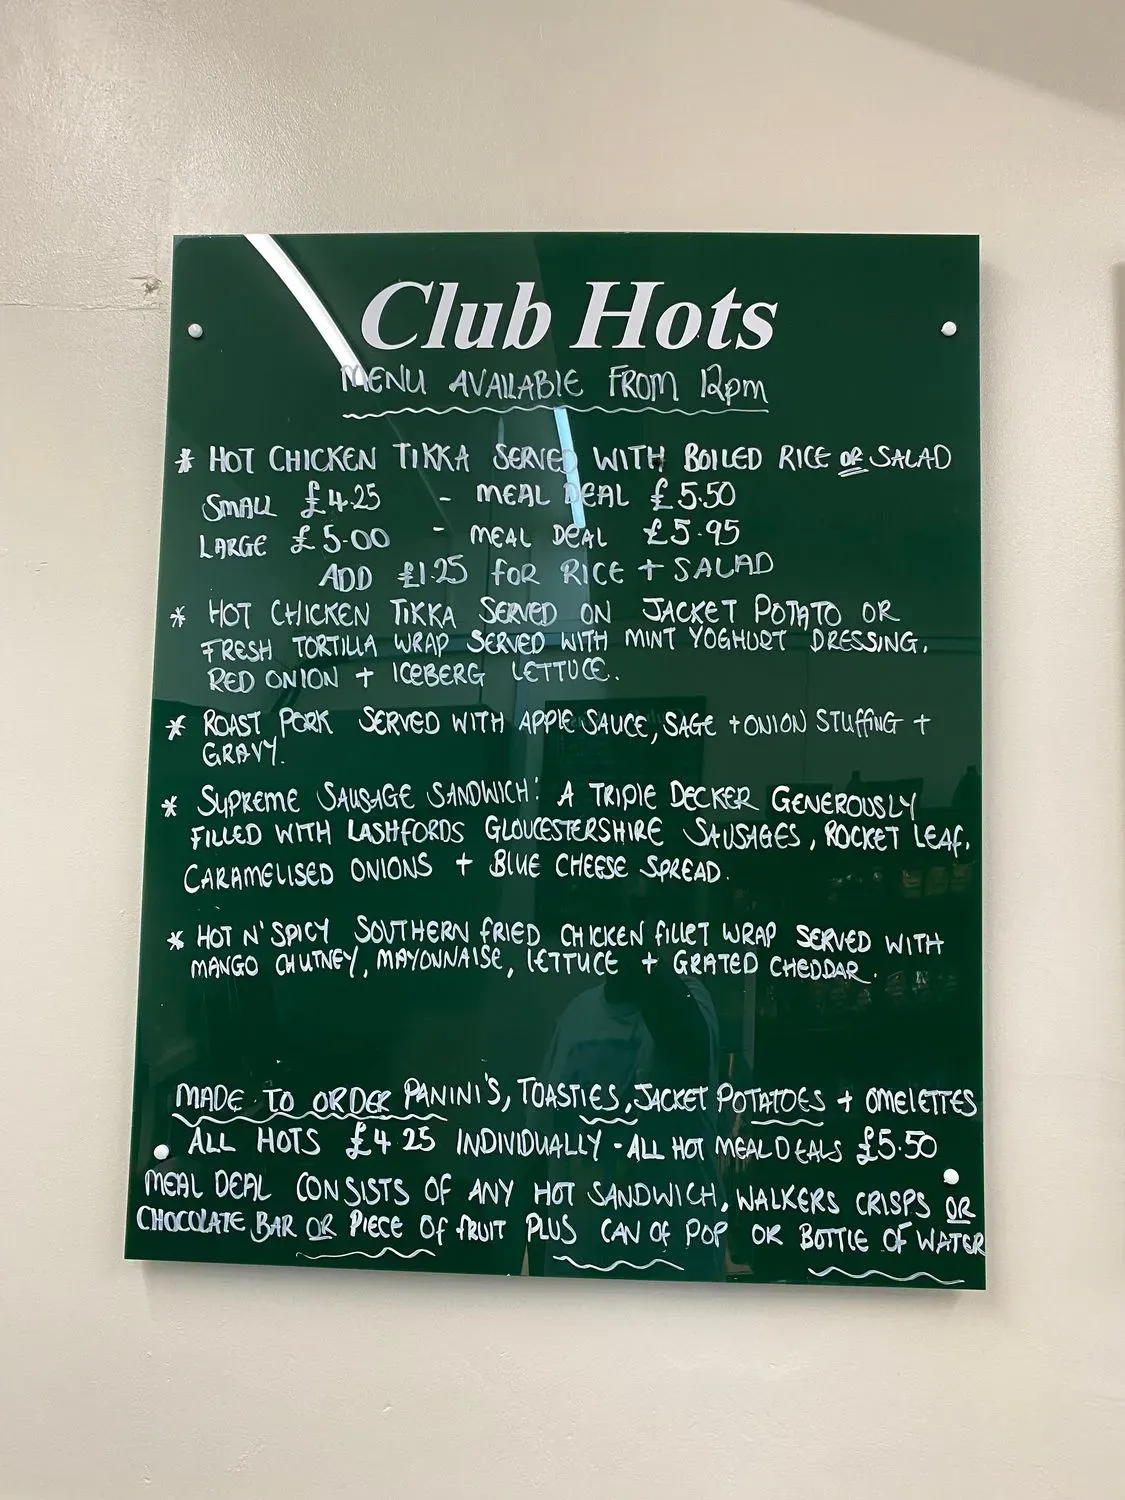 Club Hots
MENU AVAILABLE FROM 12pm
* HOT CHICKEN TIKKA SERVED WITH BOILED RICE OR SALAD
SMALL £4.25 - MEAL DEAL £5.50
LARGE £5.00 - MEAL DEAL £5.95
ADD £1.25 FOR RICE + SALAD
* HOT CHICKEN TIKKA SERVED ON JACKET POTATO OR
FRESH TORTILLA WRAP SERVED WITH MINT YOGHURT DRESSING,
RED ONION + ICEBERG LETTUCE.
* ROAST PORK SERVED WITH APPLE SAUCE, SAGE + ONION STUFFING +
GRAVY.
* SUPREME SAUSAGE SANDWICH: A TRIPLE DECKER GENEROUSLY
FILLED WITH LASHFORDS GLOUCESTERSHIRE SAUSAGES, ROCKET LEAF,
CARAMELISED ONIONS + BLUE CHEESE SPREAD.
* HOT N' SPICY SOUTHERN FRIED CHICKEN FILLET WRAP SERVED WITH
MANGO CHUTNEY, MAYONNAISE, LETTUCE + GRATED CHEDDAR.
MADE TO ORDER PANINI'S, TOASTIES, JACKET POTATOES + OMELETTES
ALL HOTS £4.25 INDIVIDUALLY - ALL HOT MEAL DEALS £5.50
MEAL DEAL CONSISTS OF ANY HOT SANDWICH, WALKERS CRISPS OR
CHOCOLATE BAR OR PIECE OF FRUIT PLUS CAN OF POP OR BOTTLE OF WATER